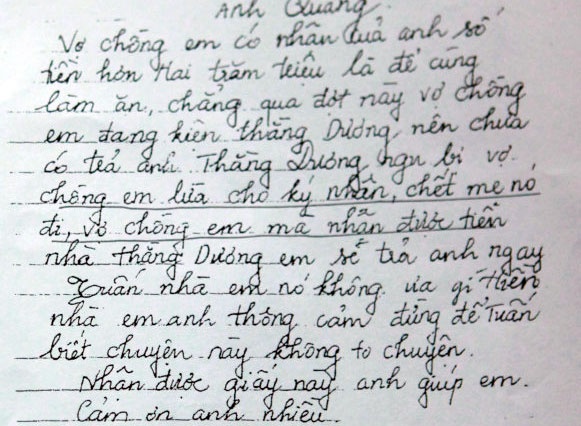 Anh Quang.
Vợ chồng em có nhận của anh số
tiền hơn Hai trăm triệu là để cùng
làm ăn, chẳng qua đợt này vợ chồng
em đang kiện thằng Dương, nên chưa
có trả anh Thằng Dương, ngu bị vợ
chồng em lừa cho ký nhận, chết mẹ nó
đi, vợ chồng em mà nhận được tiền
nhà thằng Dương em sẽ trả anh ngay
Tuấn nhà em nó không ưa gì Hiền
nhà em anh thông cảm đừng để Tuấn
biết chuyện này không to chuyện.
Nhận được giấy này anh giúp em.
Cảm ơn anh nhiều.